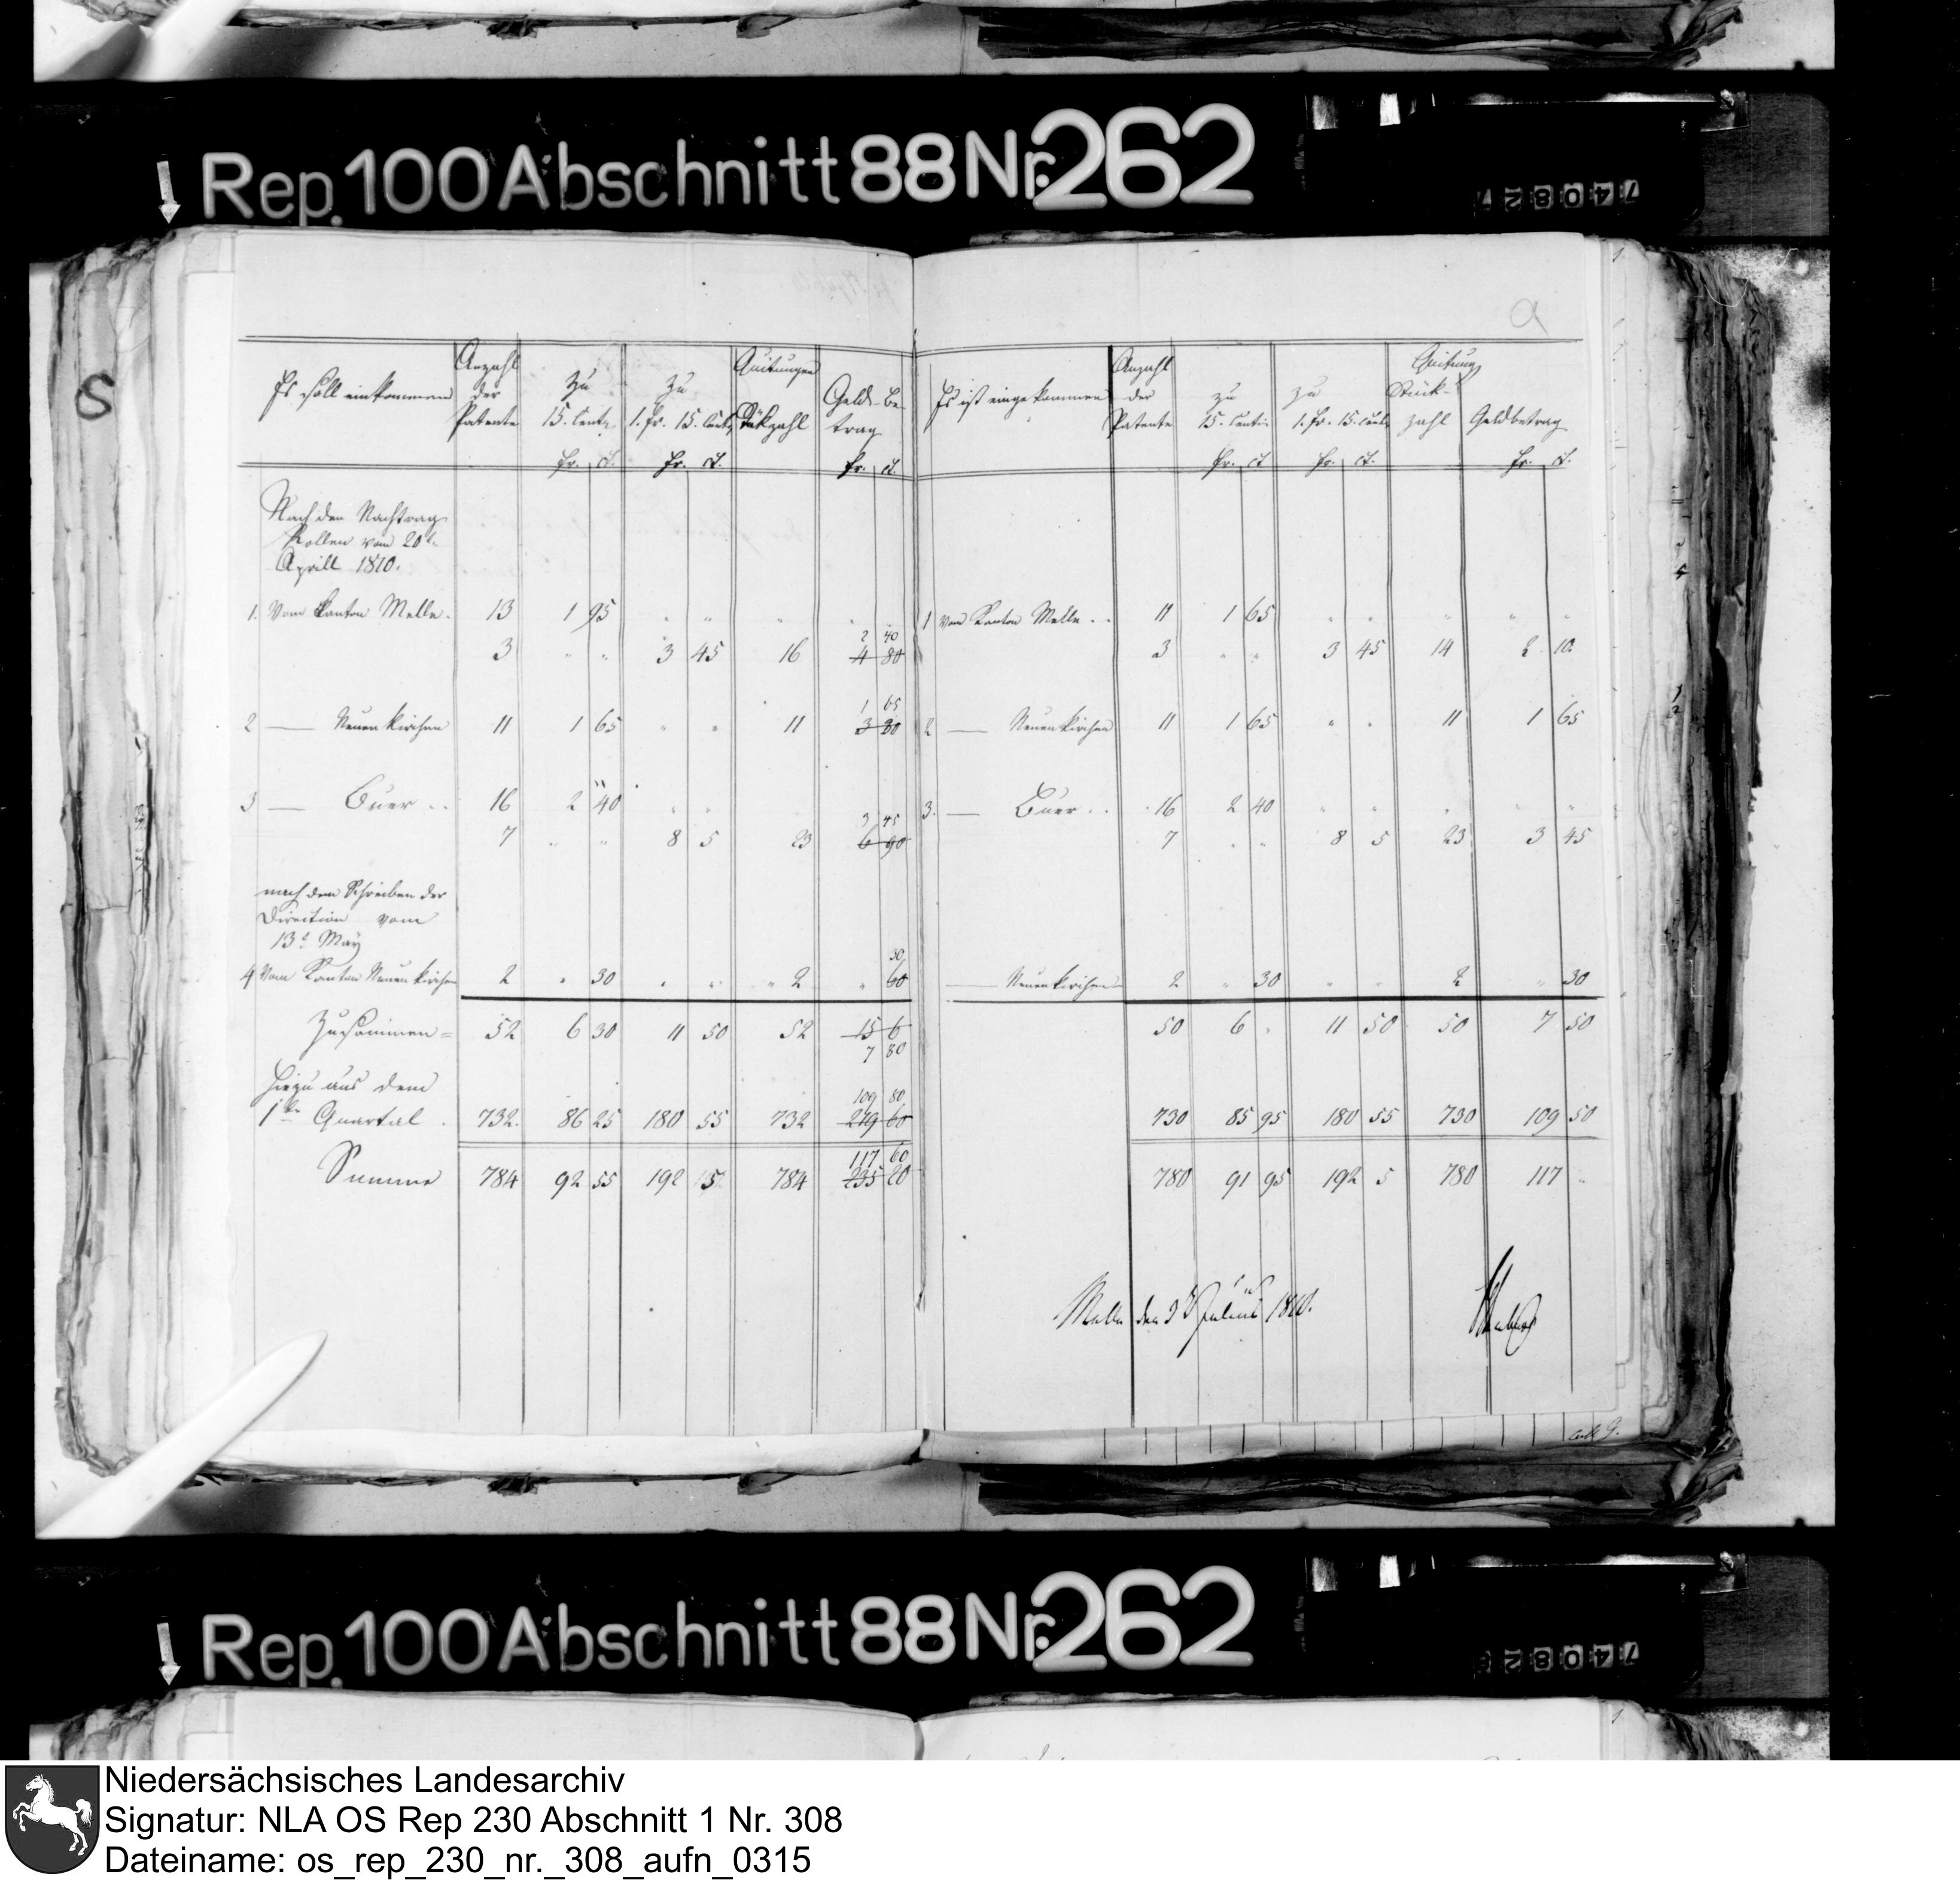 Rep. 100 Abschnitt 88 Nr. 262
74082
S
Es soll einkommen
Anzahl der Patente
zu 15. Cent.
fr. ct.
zu 1. fr. 15. Cent.
fr. ct.
Quitungen Stükzahl
Geld-Betrag
fr. ct.
Nach den Nachtrag
Rollen vom 20t
Aprill 1810.
1. Vom Canton Melle. 13 1 95 " " " "
2 40
3 " " 3 45 16 4 80
1 65
2 — Neuenkirchen 11 1 65 " " 11 3 30
3 — Buer .. 16 2 40 " "
3 45
7 " " 8 5 23 6 90
nach dem Schreiben der
Direction vom
13t May
30
4 Vom Canton Neuenkirchen 2 " 30 " " 2 " 60
Zusammen = 52 6 30 11 50 52 15 6
7 80
hiezu aus dem
109 80
1ten Quartal . 732. 86 25 180 55 732 219 60
117 60
Summe 784 92 55 192 5 784 235 20
Es ist eingekommen
Anzahl der Patente
zu 15. Centi.
fr. ct
zu 1. fr. 15. Cent.
fr. ct.
Quitung Stück-zahl
Geldbetrag
fr. ct.
1 Vom Canton Melle .. 11 1 65 " " " " "
3 " " 3 45 14 2 10.
2 — Neuenkirchen 11 1 65 " " 11 1 65
3. — Buer .. 16 2 40 " " " " "
7 " " 8 5 23 3 45
— Neuenkirchen 2 " 30 " " 2 " 30
50 6 " 11 50 50 7 50
730 85 95 180 55 730 109 50
780 91 95 192 5 780 117 "
Melle den 3t Julius 1810.
Rep. 100 Abschnitt 88 Nr. 262
74082
Niedersächsisches Landesarchiv
Signatur: NLA OS Rep 230 Abschnitt 1 Nr. 308
Dateiname: os_rep_230_nr._308_aufn_0315